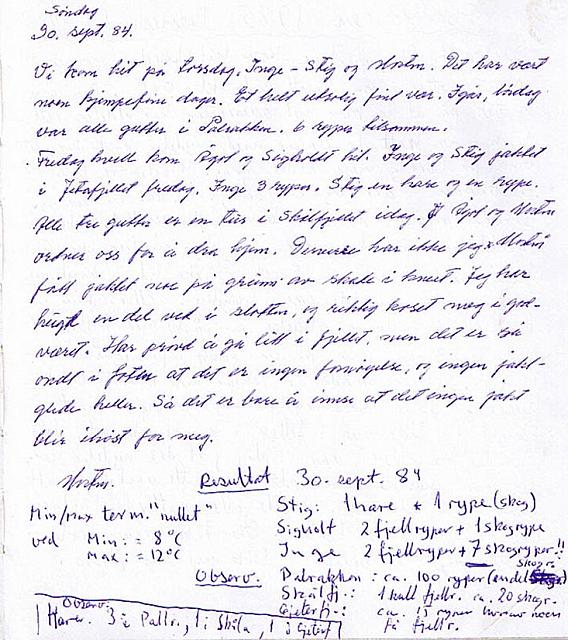 Søndag
30. sept. 84.
Vi kom hit på torsdag, Inge – Stig og Morten. Det har vært
noen kjempefine dager. Et helt utrolig fint vær. Igår, lördag
var alle gutta i Dalrakken. 6 ryper tilsammen.
Fredag kveld kom og hit. Inge og Stig jaktet
i fredag. Inge 3 ryper, Stig en hare og en rype.
Alle tre gutta er en tur i Skålfjellet idag. og Morten
ordner oss for å dra hjem. Desverre har ikke jeg Morten
fått jaktet noe på grunn av skade i kneet. Jeg har
en del ved i , og riktig koset meg i god-
været. Har prövd å gå litt i fjellet, men det er så
ondt i foten at det er ingen fornøyelse, og ingen jakt-
glede heller. Så det er bare å innse at det ingen jakt
blir ihöst for meg.
Morten.
Resultat 30. sept. 84
Min/max term. "nullet"
ved Min: = 8°C
Max: = 12°C
Stig: 1 hare + 1 rype (skog)
Sigholt 2 fjellryper + 1 skogrype
Inge 2 fjellryper + 7 skogryper!!
Observ. Dalrakken: ca. 100 ryper (endel skogr.
Skålfj.: 1 kull fjellr. ca. 20 skogr.
Gjeterfj.: ca. 15 ryper hvorav noen
få fjellr.
Observ:
Harer. 3 i , 1 i Skåla, 1 i Gjeterf